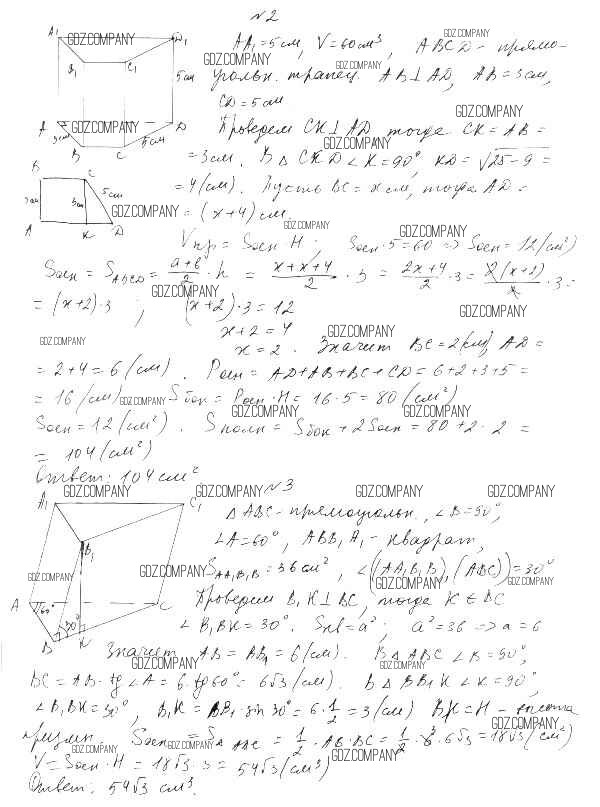 N2
AA₁ = 5 см, V = 60 см³, ABCD - прямо-
угольн. трапец. AB⊥AD, AB = 3 см,
CD = 5 см
Проведем CK⊥AD тогда CK = AB =
= 3 см. В △ CKD ∠K = 90°, KD = √25-9 =
= 4 (см). Пусть BC = x см, тогда AD =
= (x+4) см.
Vпр = Sосн · H ; Sосн · 5 = 60 => Sосн = 12 (см²)
Sосн = SABCD = a+b/2 · h = x+x+4/2 · 3 = 2x+4/2 · 3 = 2(x+2)/2 · 3 =
= (x+2)·3 ; (x+2)·3 = 12
x+2 = 4
x = 2. Значит BC = 2 (см) AD =
= 2+4 = 6 (см). Pосн = AD+AB+BC+CD = 6+2+3+5 =
= 16 (см) Sбок = Pосн · H = 16·5 = 80 (см²)
Sосн = 12 (см²). Sполн = Sбок + 2Sосн = 80 + 2 · 2 =
= 104 (см²)
Ответ: 104 см²
N3
△ ABC - прямоугольн, ∠B = 90°,
∠A = 60°, ABB₁A₁ - квадрат,
SAA₁B₁B = 36 см², ∠((AA₁B₁B), (ABC)) = 30°
Проведем B₁K⊥BC, тогда K ∈ BC
∠B₁BK = 30°. Sкв = a²; a² = 36 => a = 6
Значит AB = BB₁ = 6 (см). В △ ABC ∠B = 90°,
BC = AB · tg ∠A = 6 · tg 60° = 6√3 (см). В △ BB₁K ∠K = 90°,
∠B₁BK = 30°, B₁K = BB₁ · sin 30° = 6 · 1/2 = 3 (см) B₁K = H - высота
призмы. Sосн = S△ABC = 1/2 · AB · BC = 1/2 · 6 · 6√3 = 18√3 (см²)
V = Sосн · H = 18√3 · 3 = 54√3 (см³)
Ответ: 54√3 см³.
A₁
D₁
B₁
C₁
5 см
A
D
3 см
B
C
5 см
B
C
3 см
3 см
5 см
A
K
D
A₁
C₁
B₁
A
60°
C
30°
B
K
GDZ.COMPANY